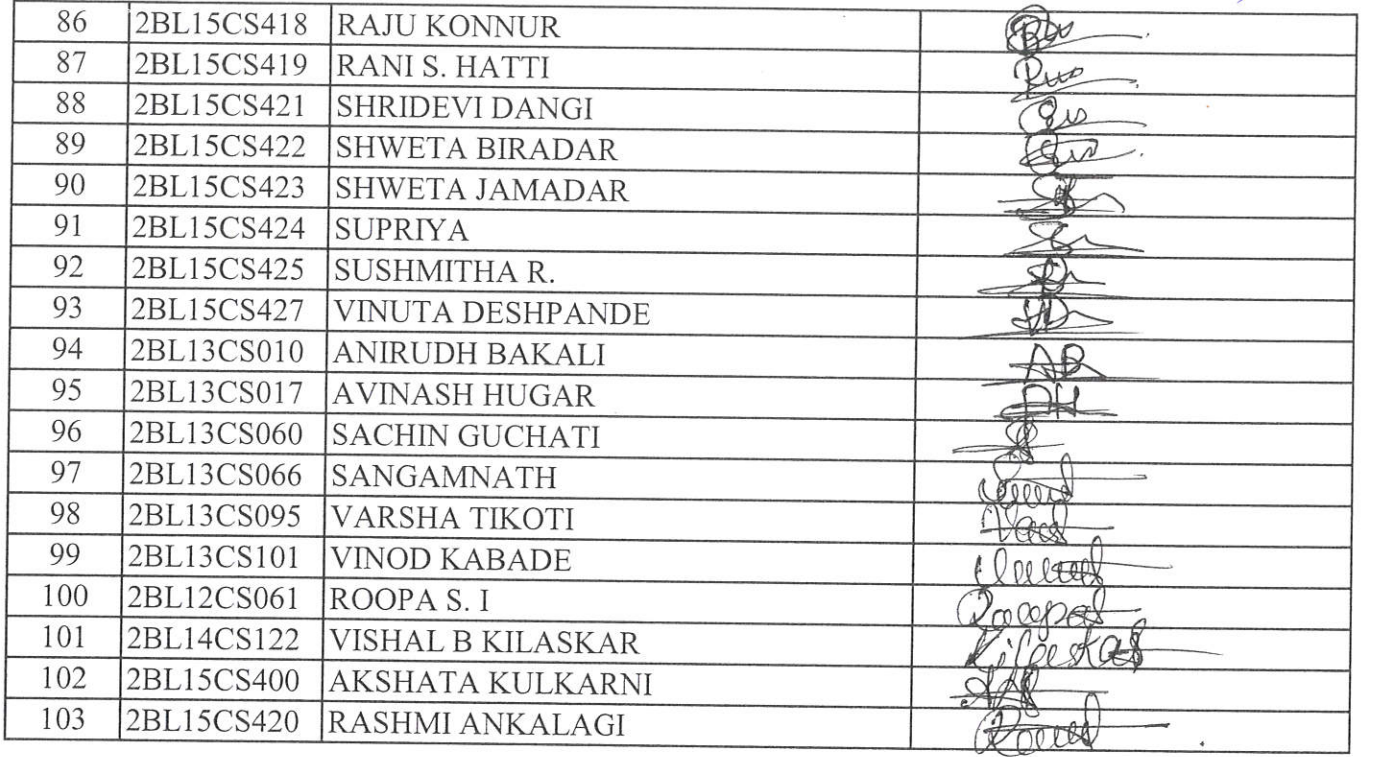 86 2BL15CS418 RAJU KONNUR
87 2BL15CS419 RANI S. HATTI
88 2BL15CS421 SHRIDEVI DANGI
89 2BL15CS422 SHWETA BIRADAR
90 2BL15CS423 SHWETA JAMADAR
91 2BL15CS424 SUPRIYA
92 2BL15CS425 SUSHMITHA R.
93 2BL15CS427 VINUTA DESHPANDE
94 2BL13CS010 ANIRUDH BAKALI AB
95 2BL13CS017 AVINASH HUGAR AH
96 2BL13CS060 SACHIN GUCHATI
97 2BL13CS066 SANGAMNATH
98 2BL13CS095 VARSHA TIKOTI
99 2BL13CS101 VINOD KABADE
100 2BL12CS061 ROOPA S. I
101 2BL14CS122 VISHAL B KILASKAR
102 2BL15CS400 AKSHATA KULKARNI
103 2BL15CS420 RASHMI ANKALAGI